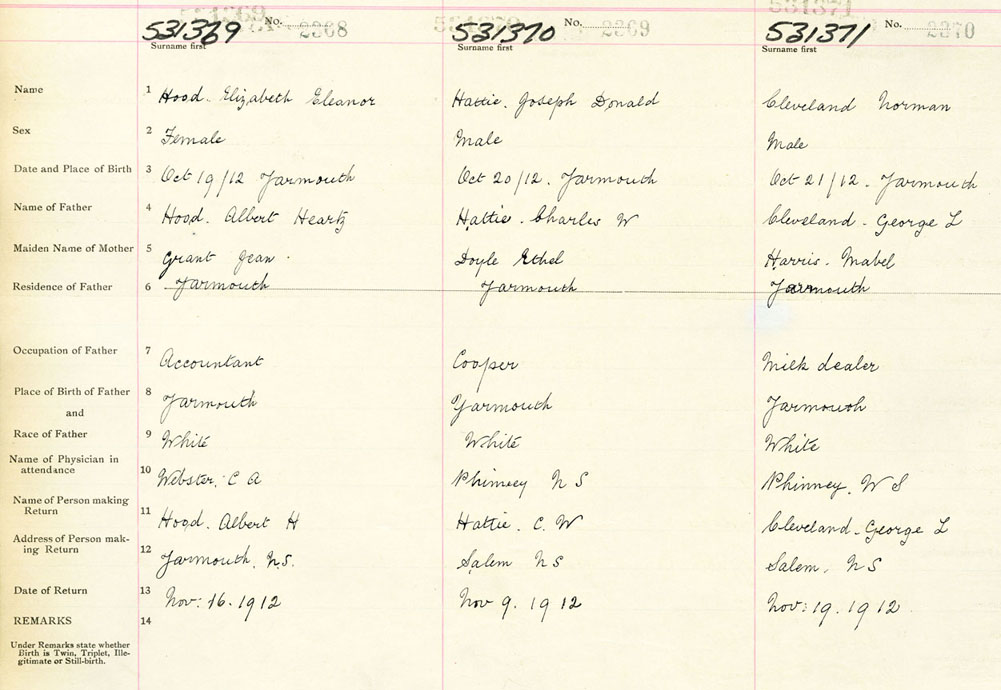 531369 No. 2268 531370 No. 2269 531371 No. 2270
Surname first Surname first Surname first
Name 1 Hood. Elizabeth Eleanor Hattie. Joseph Donald Cleveland Norman
Sex 2 Female Male Male
Date and Place of Birth 3 Oct 19/12 Yarmouth Oct 20/12. Yarmouth Oct 21/12. Yarmouth
Name of Father 4 Hood. Albert Heartz Hattie. Charles W Cleveland. George L
Maiden Name of Mother 5 Grant Jean. Doyle Ethel Harris. Mabel
Residence of Father 6 Yarmouth Yarmouth Yarmouth
Occupation of Father 7 Accountant Cooper Milk dealer
Place of Birth of Father 8 Yarmouth Yarmouth Yarmouth
and
Race of Father 9 White White White
Name of Physician in
attendance 10 Webster, C A Phinney N S Phinney, W S
Name of Person making
Return 11 Hood. Albert H Hattie. C. W Cleveland. George L
Address of Person mak-
ing Return 12 Yarmouth, N.S. Salem N S Salem, N S
Date of Return 13 Nov: 16. 1912 Nov 9. 1912 Nov: 19. 1912
REMARKS 14
Under Remarks state whether
Birth is Twin, Triplet, Ille-
gitimate or Still-birth.